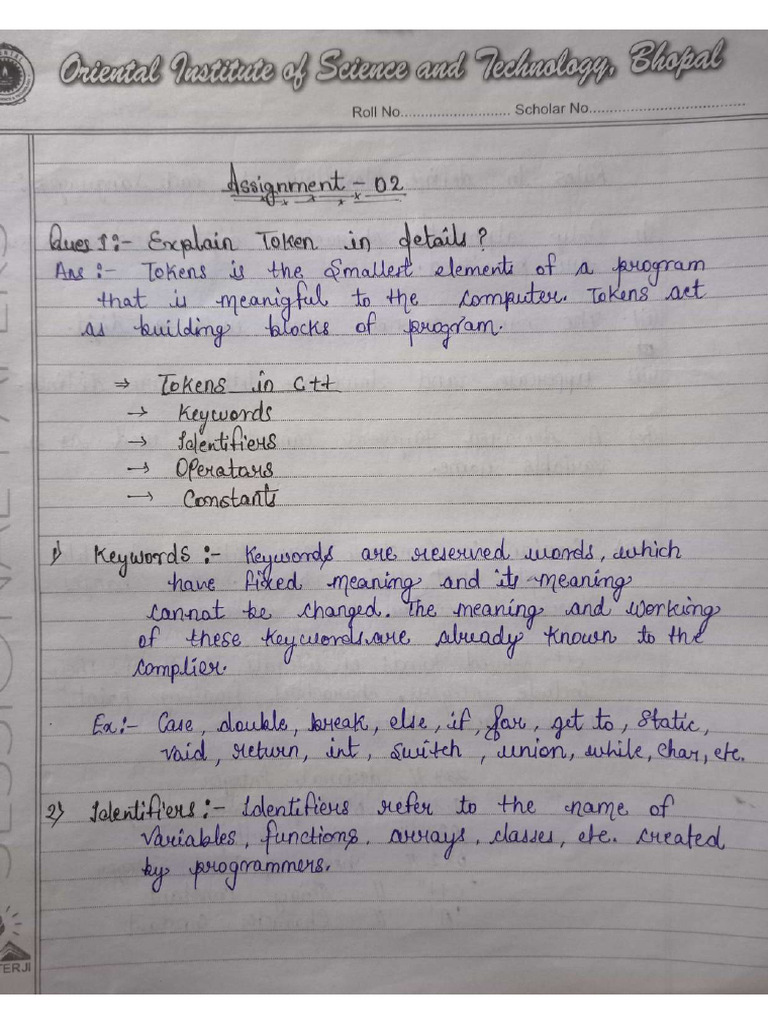 Oriental Institute of Science and Technology, Bhopal
Roll No............................ Scholar No........................................
Assignment - 02
Ques 1:- Explain Token in details?
Ans :- Tokens is the smallest elements of a program
that is meanigful to the computer. Tokens act
as building blocks of program.
⇒ Tokens in C++
→ Keywords
→ Identifiers
→ Operatars
→ Constants
1) Keywords :- Keywords are reserved words, which
have fixed meaning and its meaning
cannot be changed. The meaning and working
of these keywords are already known to the
complier.
Ex:- Case, double, break, else, if, for, get to, Static,
void, return, int, switch, union, while, char, etc.
2) Identifiers :- Identifiers refer to the name of
variables, functions, arrays, classes, etc. created
by programmers.
TERJI